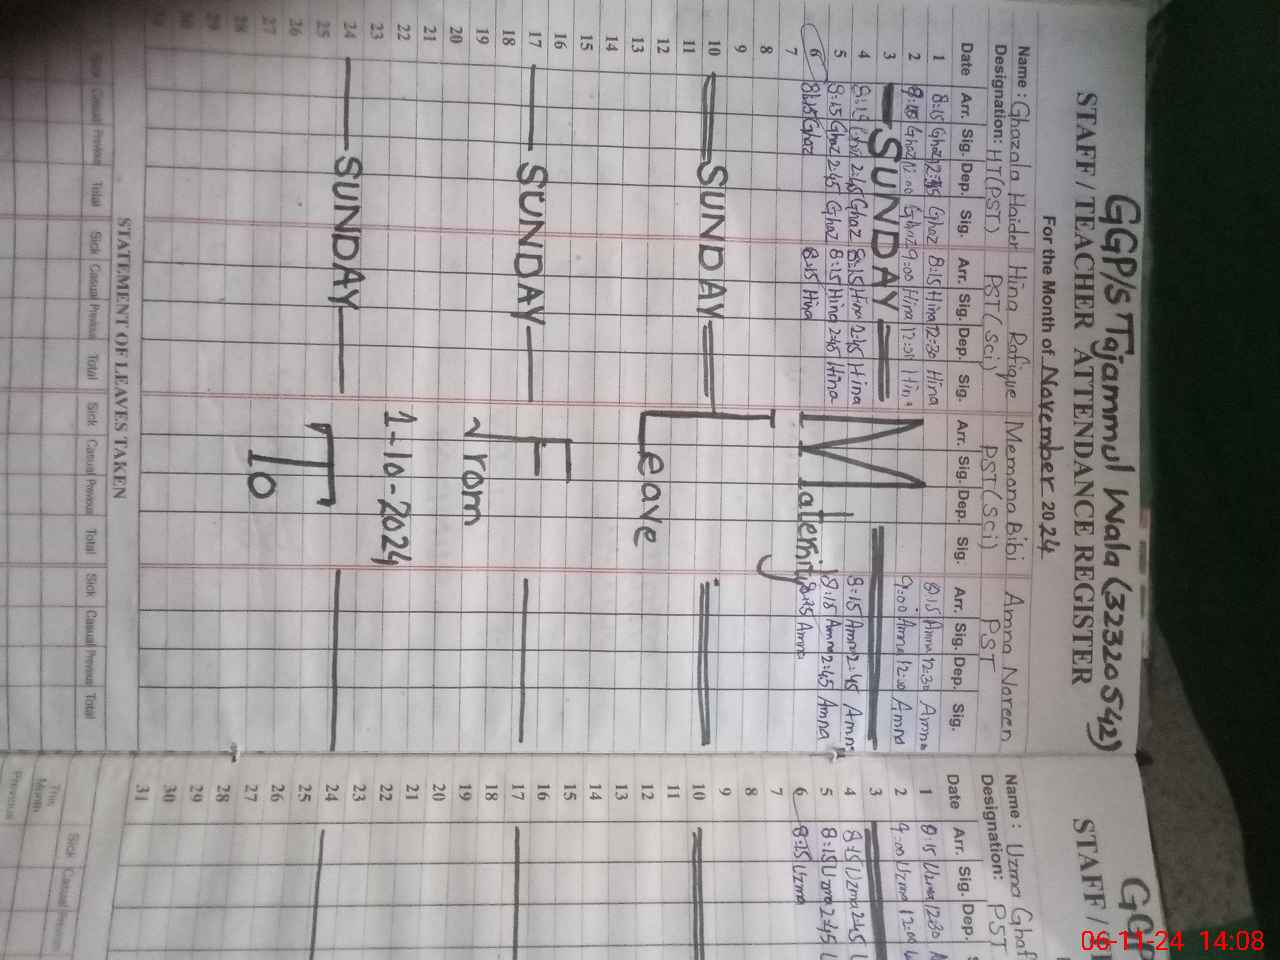 GGP/S Tajammul Wala (32320542)
STAFF / TEACHER ATTENDANCE REGISTER
For the Month of November 2024
Name : Ghazala Haider Hina Rafique Memona Bibi Amna Noreen
Designation: HT(PST) PST(Sci) PST(Sci) PST
Date Arr. Sig. Dep. Sig. Arr. Sig. Dep. Sig. Arr. Sig. Dep. Sig. Arr. Sig. Dep. Sig.
1 8:15 Ghaz Ghaz 8:15 Hina 12:30 Hina 8:15 Amna 12:30 Amna
2 Ghaz 12:00 Ghaz 9:00 Hina Hina 9:00 Amna Amna
3 SUNDAY
4 8:15 2:45 Ghaz 8:15 Hina 2:45 Hina 8:15 Amna 2:45 Amna
5 8:15 Ghaz 2:45 Ghaz 8:15 Hina 2:45 Hina 8:15 Amna 2:45 Amna
6 8:15 Ghaz 8:15 Hina Maternity Amna
7
8
9
10 SUNDAY
11
12
13 Leave
14
15
16
17 SUNDAY
18
19 From
20
21
22 1-10-2024
23
24 SUNDAY
25
26
27 To
28
STATEMENT OF LEAVES TAKEN
Sick Casual Previous Total Sick Casual Previous Total Sick Casual Previous Total Sick Casual Previous Total
STAFF /
Name : Uzma Ghaf
Designation: PST
Date Arr. Sig. Dep.
1 8:15 Uzma 12:30
2 9:00 Uzma 12:00
3
4 8:15 Uzma 2:45
5 8:15 Uzma 2:45
6 8:15 Uzma
7
8
9
10
11
12
13
14
15
16
17
18
19
20
21
22
23
24
25
26
27
28
29
30
31
This Month
Previous
Sick Casual
06-11-24 14:08